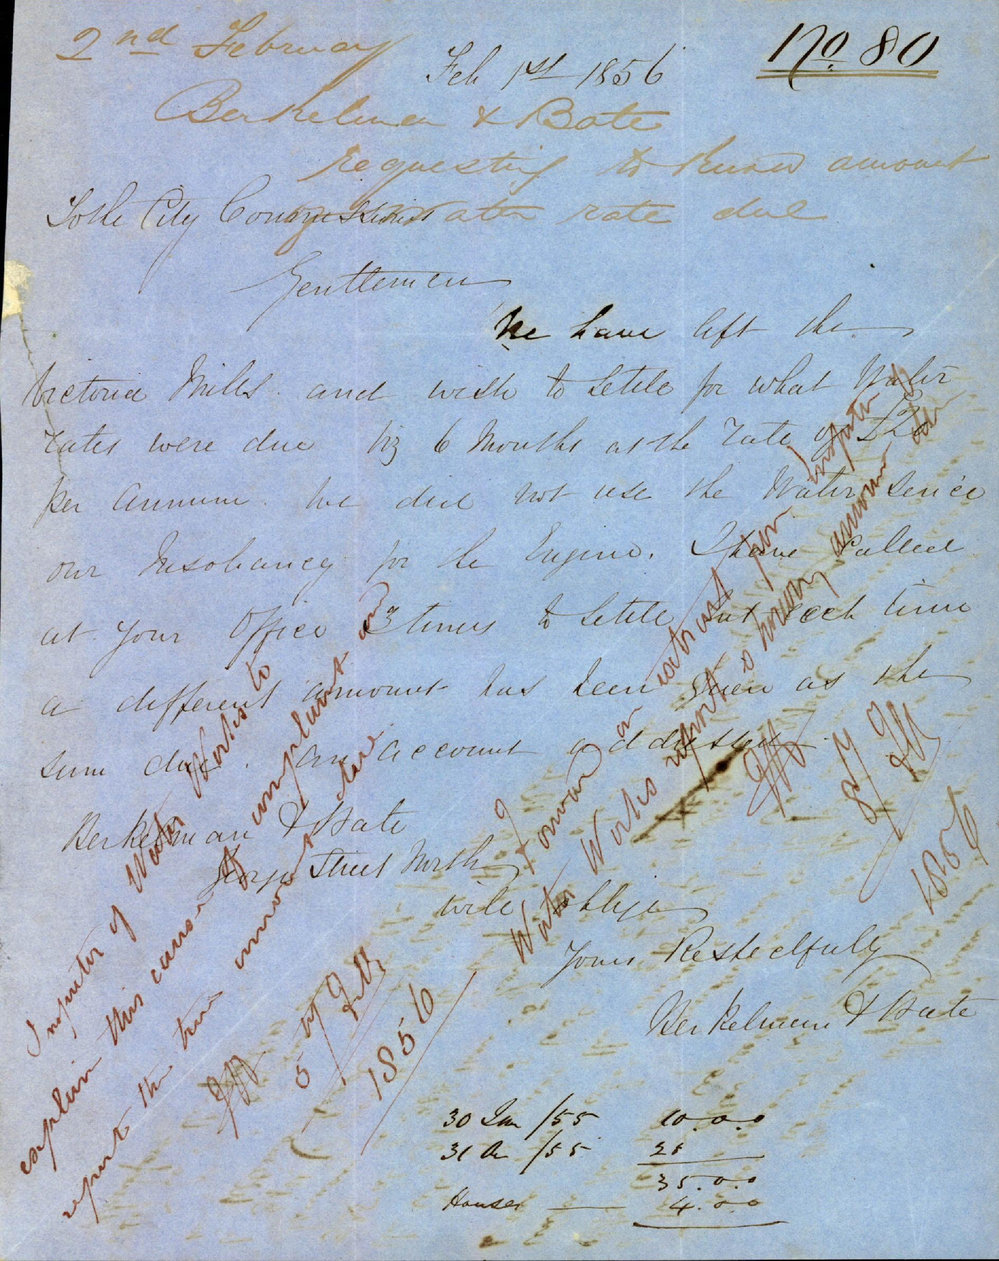 2nd February
No. 80
Feb 1st 1856
Berkelman & Bate
requesting to know amount
of Water rate due
To the City Commissioners
Gentlemen
We have left the
Victoria Mills and wish to settle for what Water
rates were due viz 6 Months at the rate of
per annum. We did not use the Water since
our Insolvancy for the Engine. I have called
at your Office 3 times to settle but each time
a different amount has been given as the
sum due. An account addressed
Berkelman & Bate
George Street North
will oblige
Yours Respectfully
Berkelman & Bate
Inspector of Water Works to
explain this cause of complaint and
report the true amount due
5
1856
Forward a extract per Inspector of
Water Works report & money amount due
1856
30 Jun /55 10.0.0
31 /55 25
35.0.0
Houses 4.0.0